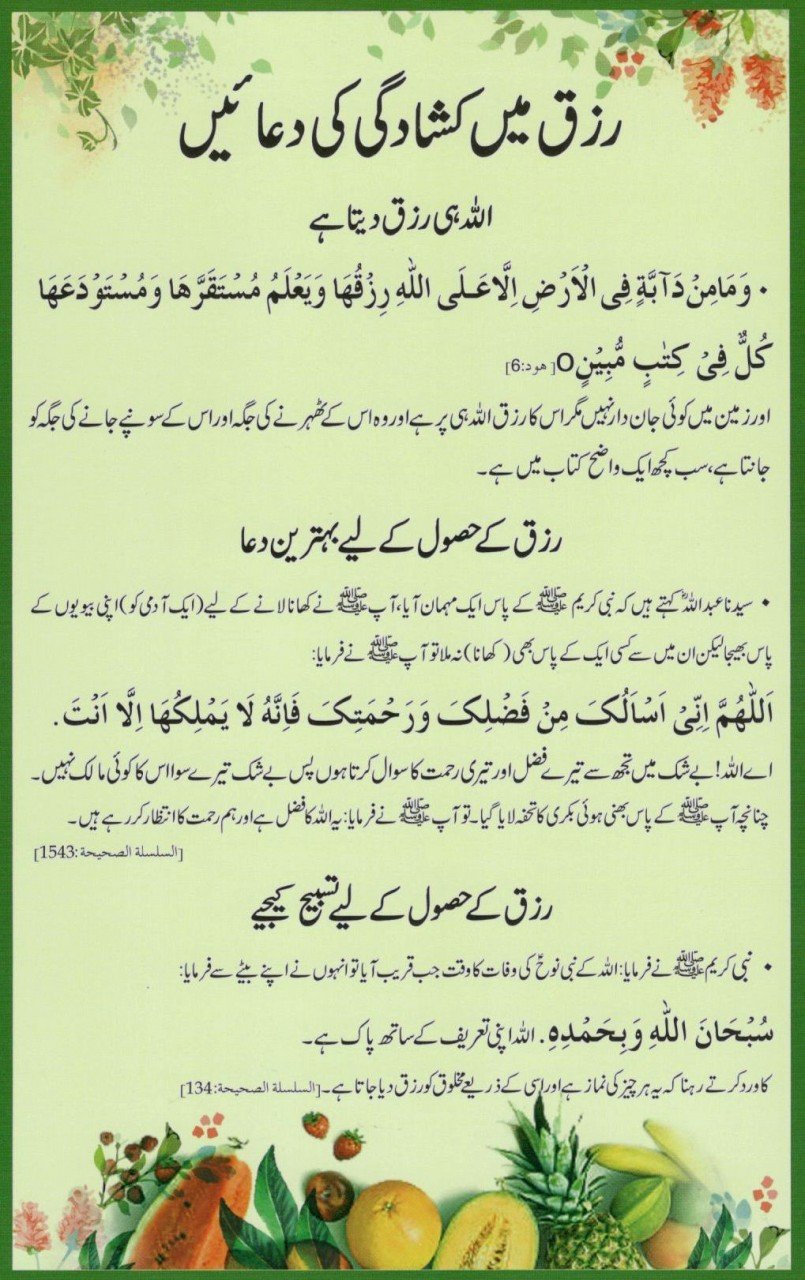 رزق میں کشادگی کی دعائیں
اللہ ہی رزق دیتا ہے
• وَمَا مِنْ دَآبَّةٍ فِی الْاَرْضِ اِلَّا عَلَی اللّٰهِ رِزْقُهَا وَیَعْلَمُ مُسْتَقَرَّهَا وَمُسْتَوْدَعَهَا
کُلٌّ فِیْ کِتٰبٍ مُّبِیْنٍO [هود:6]
اور زمین میں کوئی جان دار نہیں مگر اس کا رزق اللہ ہی پر ہے اور وہ اس کے ٹھہرنے کی جگہ اور اس کے سونپے جانے کی جگہ کو
جانتا ہے، سب کچھ ایک واضح کتاب میں ہے۔
رزق کے حصول کے لیے بہترین دعا
• سیدنا عبداللہؓ کہتے ہیں کہ نبی کریم ﷺ کے پاس ایک مہمان آیا، آپ ﷺ نے کھانا لانے کے لیے (ایک آدمی کو) اپنی بیویوں کے
پاس بھیجا لیکن ان میں سے کسی ایک کے پاس بھی (کھانا) نہ ملا تو آپ ﷺ نے فرمایا:
اَللّٰهُمَّ اِنِّیْ اَسْاَلُکَ مِنْ فَضْلِکَ وَرَحْمَتِکَ فَاِنَّهُ لَا یَمْلِکُهَا اِلَّا اَنْتَ.
اے اللہ! بے شک میں تجھ سے تیرے فضل اور تیری رحمت کا سوال کرتا ہوں پس بے شک تیرے سوا اس کا کوئی مالک نہیں۔
چنانچہ آپ ﷺ کے پاس بھنی ہوئی بکری کا تحفہ لایا گیا۔ تو آپ ﷺ نے فرمایا: یہ اللہ کا فضل ہے اور ہم رحمت کا انتظار کر رہے ہیں۔
[السلسلة الصحیحة:1543]
رزق کے حصول کے لیے تسبیح کیجیے
• نبی کریم ﷺ نے فرمایا: اللہ کے نبی نوحؑ کی وفات کا وقت جب قریب آیا تو انہوں نے اپنے بیٹے سے فرمایا:
سُبْحَانَ اللّٰهِ وَبِحَمْدِهِ. اللہ اپنی تعریف کے ساتھ پاک ہے۔
کا ورد کرتے رہنا کہ یہ ہر چیز کی نماز ہے اور اسی کے ذریعے مخلوق کو رزق دیا جاتا ہے۔ [السلسلة الصحیحة:134]